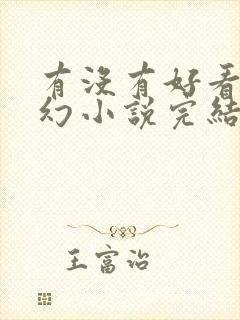 有沒有好看
幻小說完結
王富治